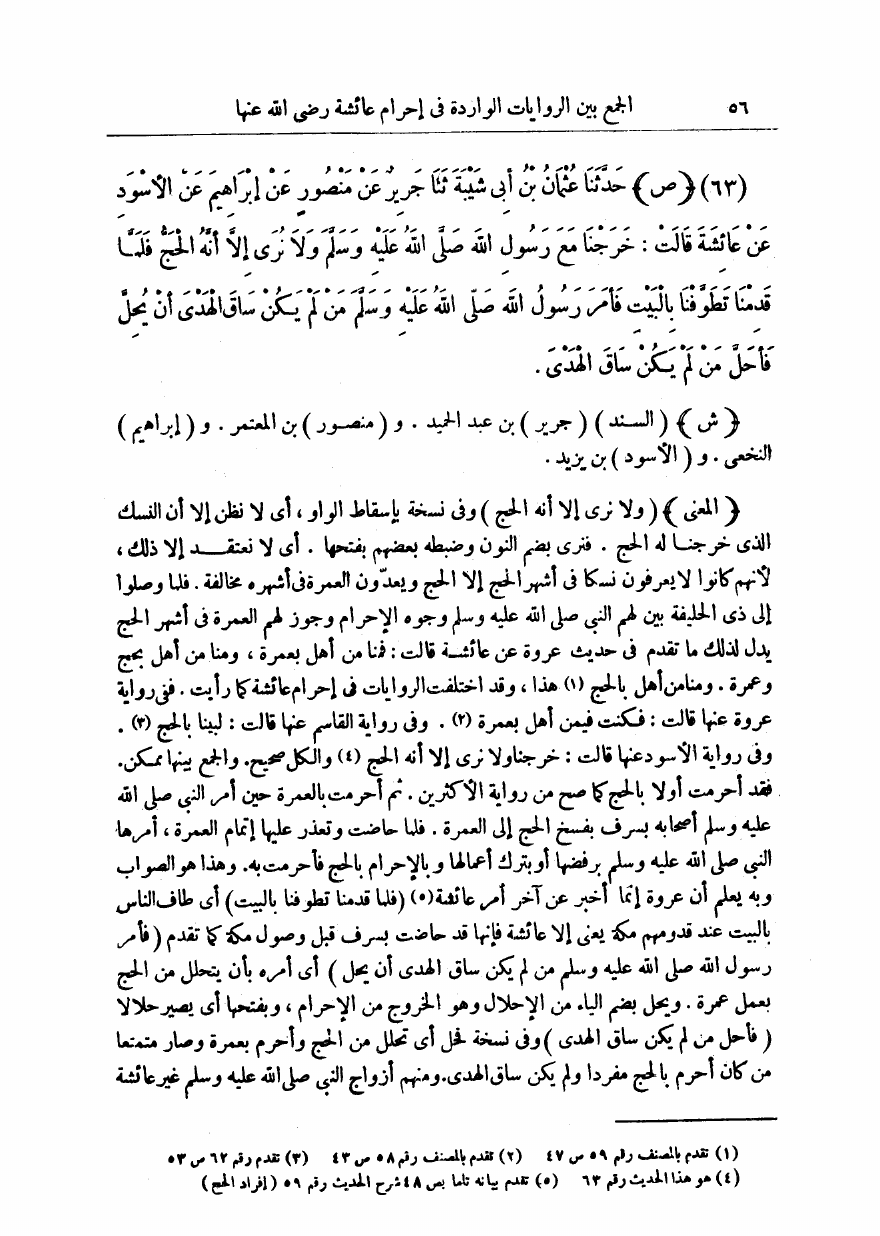 ٥٦ الجمع بين الروايات الواردة فى إحرام عائشة رضى الله عنها
(٦٣) ﴿ص﴾ حَدَّثَنَا عُثْمَانُ بْنُ أَبِى شَيْبَةَ ثَنَا جَرِيرٌ عَنْ مَنْصُورٍ عَنْ إِبْرَاهِيمَ عَنْ الْأَسْوَدِ
عَنْ عَائِشَةَ قَالَتْ : خَرَجْنَا مَعَ رَسُولِ اللهِ صَلَّى اللهُ عَلَيْهِ وَسَلَّمَ وَلَا نُرَى إِلَّا أَنَّهُ الْحَجُّ فَلَمَّا
قَدِمْنَا تَطَوَّفْنَا بِالْبَيْتِ فَأَمَرَ رَسُولُ اللهِ صَلَّى اللهُ عَلَيْهِ وَسَلَّمَ مَنْ لَمْ يَكُنْ سَاقَ الْهَدْىَ أَنْ يُحِلَّ
فَأَحَلَّ مَنْ لَمْ يَكُنْ سَاقَ الْهَدْىَ .
﴿ش﴾ (السند) (جرير) بن عبد الحميد . و (منصور) بن المعتمر . و (إبراهيم)
النخعى . و (الأسود) بن يزيد .
﴿المعنى﴾ (ولا نرى إلا أنه الحج) وفى نسخة بإسقاط الواو ، أى لا نظن إلا أن النسك
الذى خرجنا له الحج . فنرى بضم النون وضبطه بعضهم بفتحها . أى لا نعتقد إلا ذلك ،
لأنهم كانوا لا يعرفون نسكا فى أشهر الحج إلا الحج ويعدّون العمرة فى أشهره مخالفة . فلما وصلوا
إلى ذى الحليفة بين لهم النبي صلى الله عليه وسلم وجوه الإحرام وجوز لهم العمرة فى أشهر الحج
يدل لذلك ما تقدم فى حديث عروة عن عائشة قالت : فمنا من أهل بعمرة ، ومنا من أهل بحج
وعمرة . ومنا من أهل بالحج (١) هذا ، وقد اختلفت الروايات فى إحرام عائشة كما رأيت . ففى رواية
عروة عنها قالت : فكنت فيمن أهل بعمرة (٢) . وفى رواية القاسم عنها قالت : لبينا بالحج (٣) .
وفى رواية الأسود عنها قالت : خرجنا ولا نرى إلا أنه الحج (٤) والكل صحيح. والجمع بينها ممكن.
فقد أحرمت أولا بالحج كما صح من رواية الأكثرين . ثم أحرمت بالعمرة حين أمر النبي صلى الله
عليه وسلم أصحابه بسرف بفسخ الحج إلى العمرة . فلما حاضت وتعذر عليها إتمام العمرة ، أمرها
النبي صلى الله عليه وسلم برفضها أو بترك أعمالها وبالإحرام بالحج فأحرمت به. وهذا هو الصواب
وبه يعلم أن عروة إنما أخبر عن آخر أمر عائشة (٥) (فلما قدمنا تطوفنا بالبيت) أى طاف الناس
بالبيت عند قدومهم مكة يعنى إلا عائشة فإنها قد حاضت بسرف قبل وصول مكة كما تقدم (فأمر
رسول الله صلى الله عليه وسلم من لم يكن ساق الهدى أن يحل) أى أمره بأن يتحلل من الحج
بعمل عمرة . ويحل بضم الياء من الإحلال وهو الخروج من الإحرام ، وبفتحها أى يصير حلالا
(فأحل من لم يكن ساق الهدى) وفى نسخة فحل أى تحلل من الحج وأحرم بعمرة وصار متمتعا
من كان أحرم بالحج مفردا ولم يكن ساق الهدى. ومنهم أزواج النبي صلى الله عليه وسلم غير عائشة
(١) تقدم بالمصنف رقم ٥٩ ص ٤٧ (٢) تقدم بالمصنف رقم ٥٨ ص ٤٣ (٣) تقدم رقم ٦٢ ص ٥٣
(٤) هو هذا الحديث رقم ٦٣ (٥) تقدم بيانه تاما بص ٤٨ شرح الحديث رقم ٥٩ (إفراد الحج)